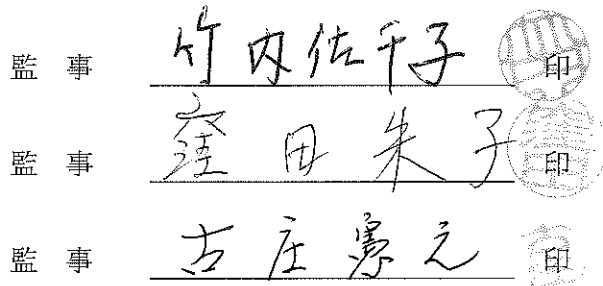 監事 竹内佐千子 印
監事 窪田朱子 印
監事 古庄憲元 印